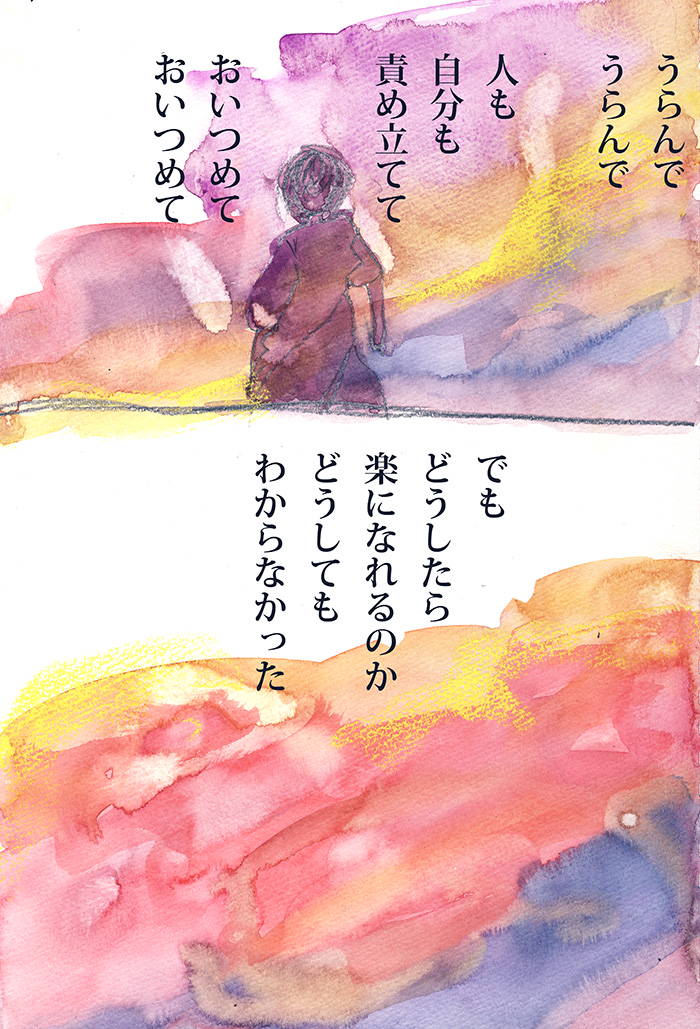 うらんで
うらんで
人も
自分も
責め立てて
おいつめて
おいつめて
でも
どうしたら
楽になれるのか
どうしても
わからなかった